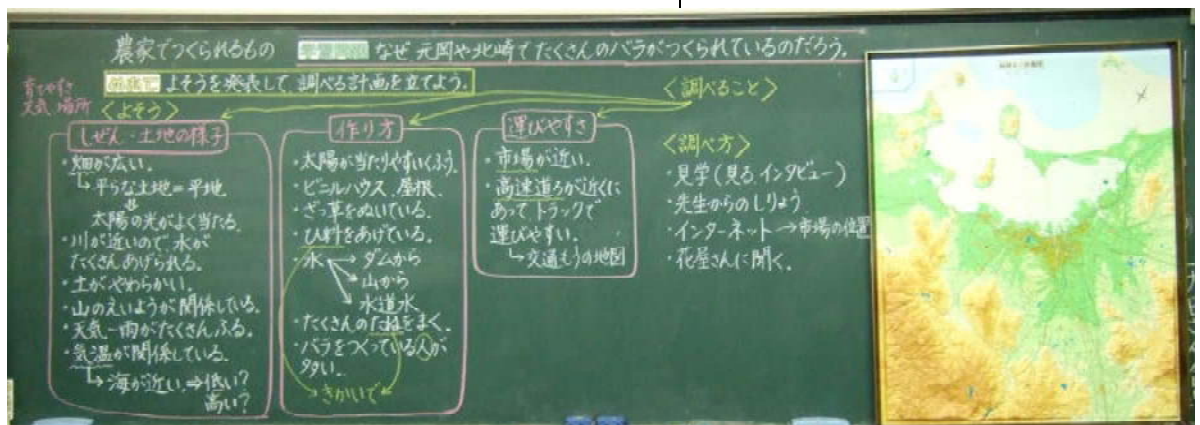 農家でつくられるもの
なぜ元岡や北崎でたくさんのバラがつくられているのだろう。
よそうを発表して、調べる計画を立てよう。
育てやすさ
天気 場所
<よそう>
しぜん・土地の様子
・畑が広い。
→平らな土地=平地
⇓
太陽の光がよく当たる。
・川が近いので、水が
たくさんあげられる。
・土がやわらかい。
・山のえいようが関係している。
・天気-雨がたくさんふる。
・気温が関係している。
→海が近い⇒低い?
高い?
作り方
・太陽が当たりやすいくふう。
・ビニルハウス、屋根、
・ざっ草をぬいている。
・ひ料をあげている。
・水→ダムから
→山から
→水道水
・たくさんのたねをまく。
・バラをつくっている人が
多い。
→きかいで
運びやすさ
・市場が近い。
・高速道ろが近くに
あってトラックで
運びやすい。
→交通もうの地図
<調べること>
<調べ方>
・見学(見る、インタビュー)
・先生からのしりょう
・インターネット→市場の位置
・花屋さんに聞く。